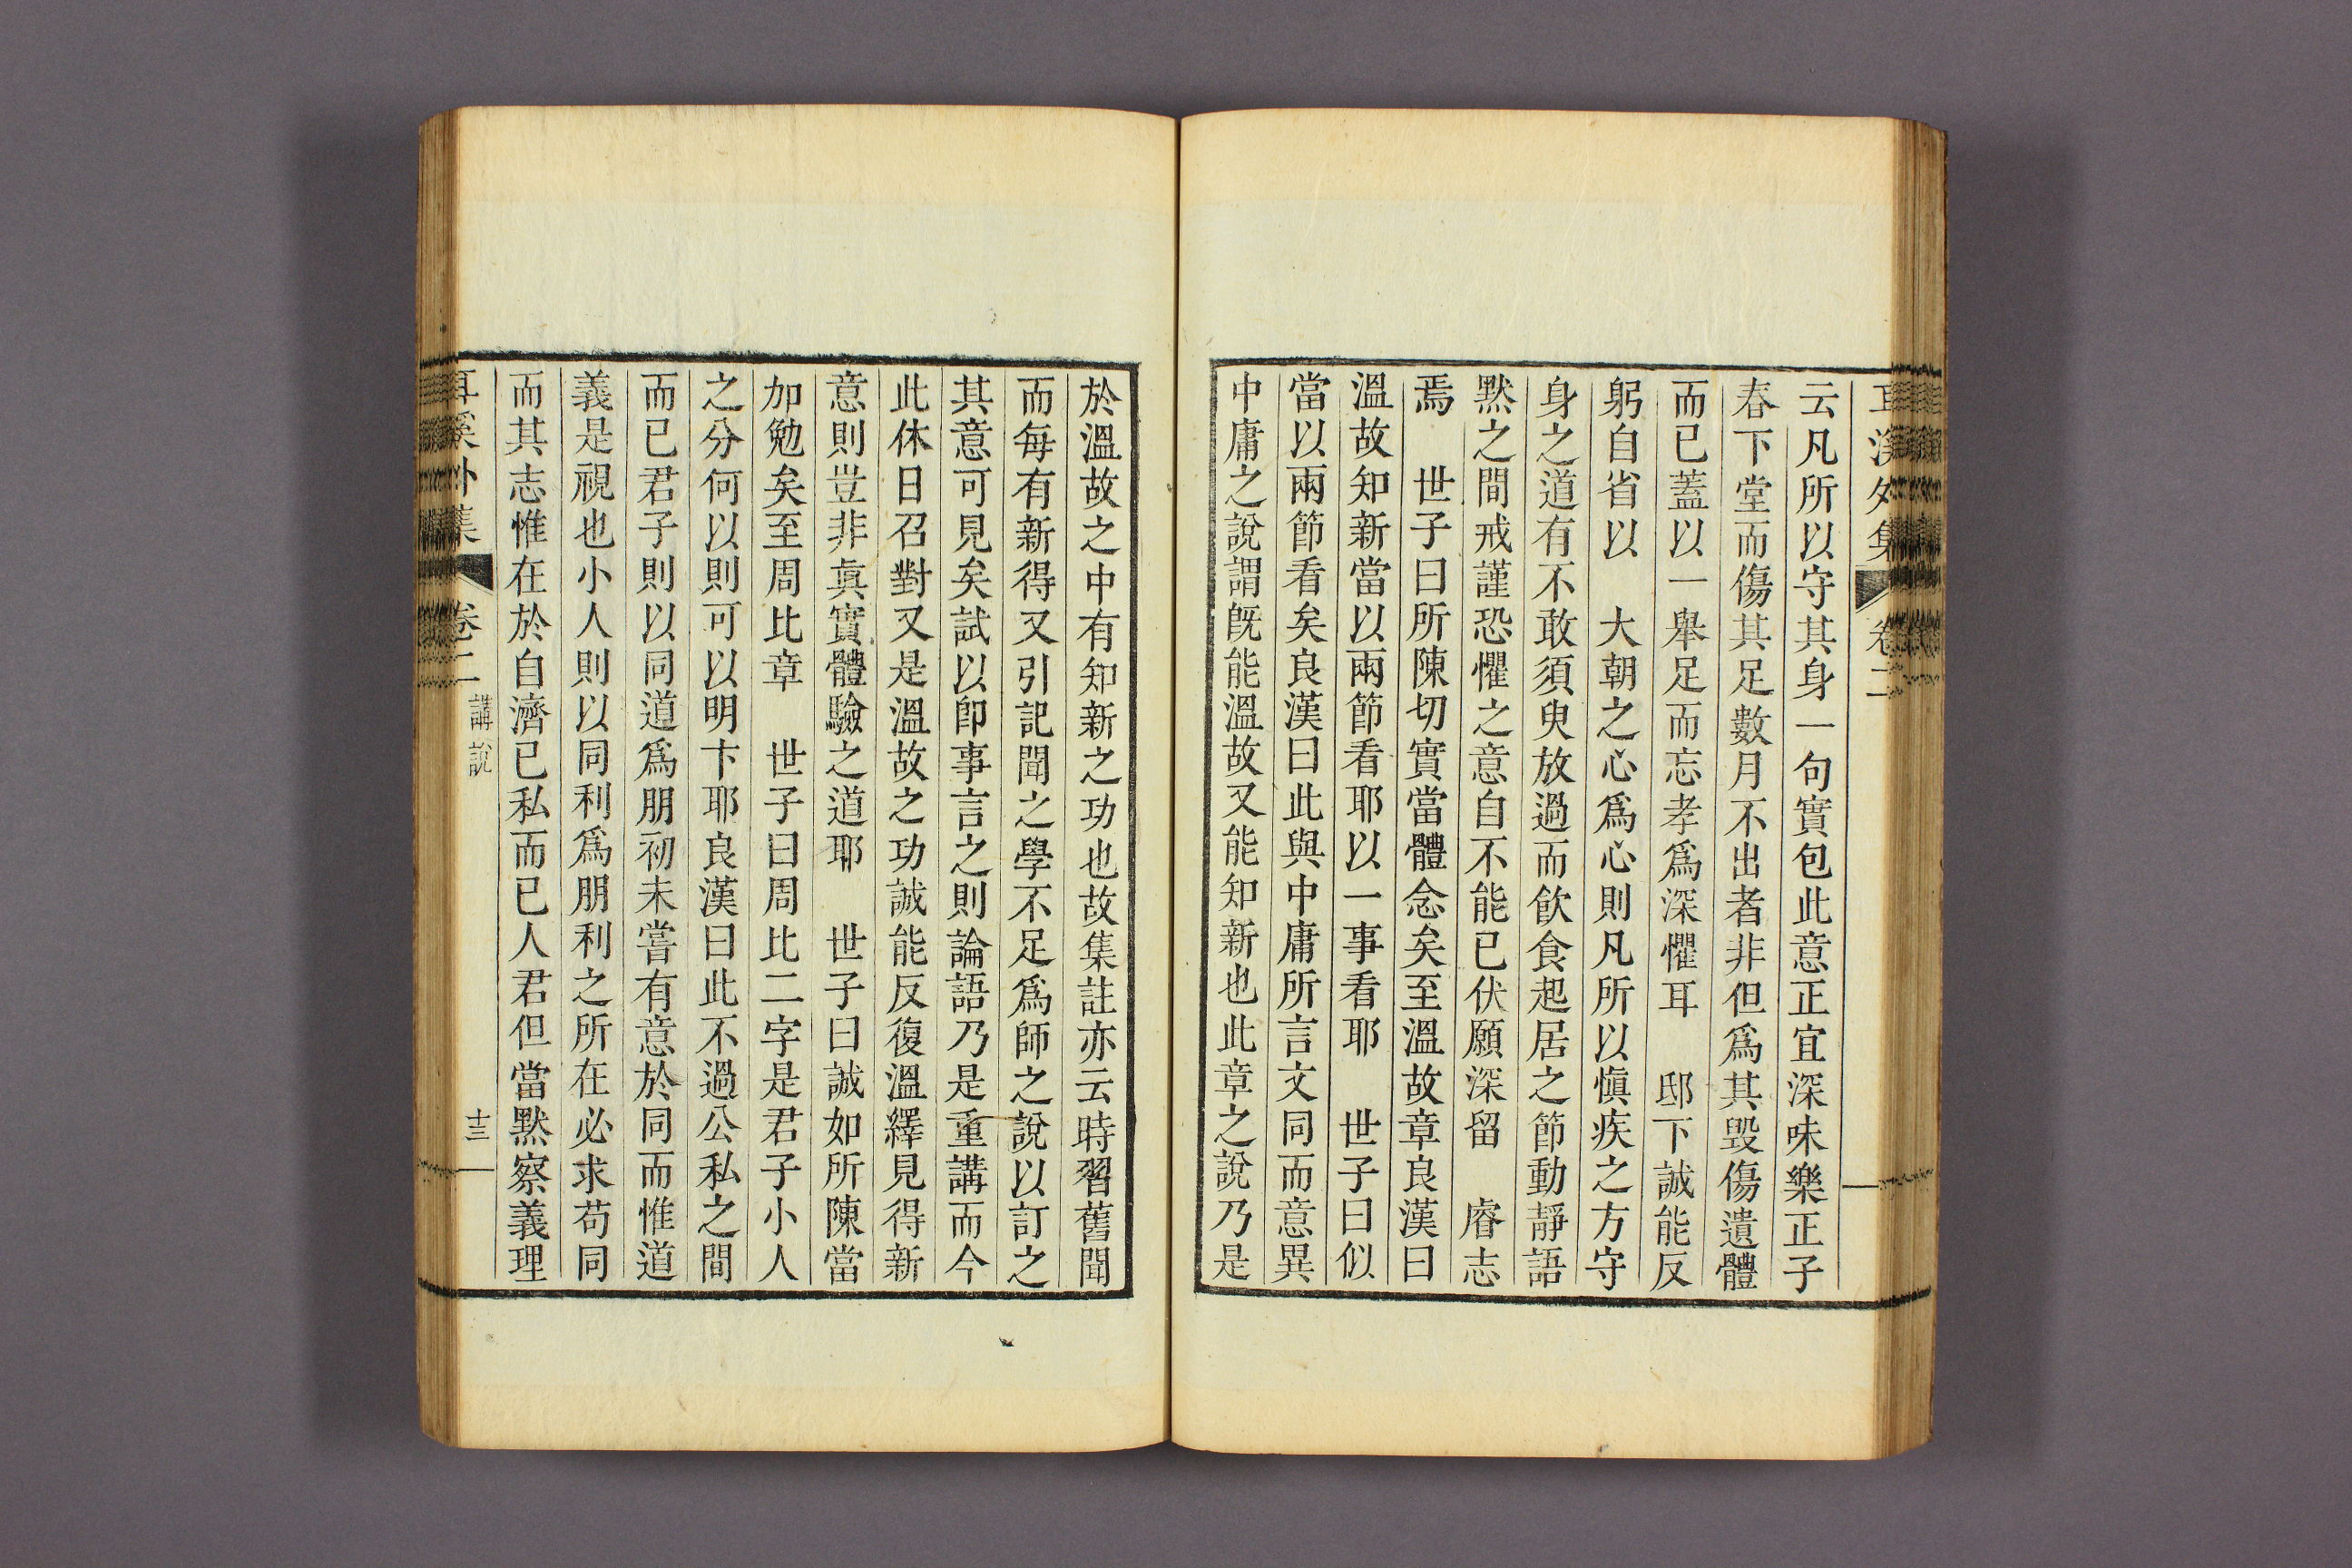 耳溪外集 卷二
云凡所以守其身一句實包此意正宜深味樂正子
春下堂而傷其足數月不出者非但爲其毀傷遺體
而已蓋以一舉足而忘孝爲深懼耳 邸下誠能反
躬自省以 大朝之心爲心則凡所以愼疾之方守
身之道有不敢須臾放過而飮食起居之節動靜語
默之間戒謹恐懼之意自不能已伏願深留 睿志
焉 世子曰所陳切實當體念矣至溫故章良漢曰
溫故知新當以兩節看耶以一事看耶 世子曰似
當以兩節看矣良漢曰此與中庸所言文同而意異
中庸之說謂旣能溫故又能知新也此章之說乃是
於溫故之中有知新之功也故集註亦云時習舊聞
而每有新得又引記聞之學不足爲師之說以訂之
其意可見矣試以卽事言之則論語乃是重講而今
此休日召對又是溫故之功誠能反復溫繹見得新
意則豈非眞實體驗之道耶 世子曰誠如所陳當
加勉矣至周比章 世子曰周比二字是君子小人
之分何以則可以明卞耶良漢曰此不過公私之間
而已君子則以同道爲朋初未嘗有意於同而惟道
義是視也小人則以同利爲朋利之所在必求苟同
而其志惟在於自濟已私而已人君但當默察義理
耳溪外集 卷二 講說 十三